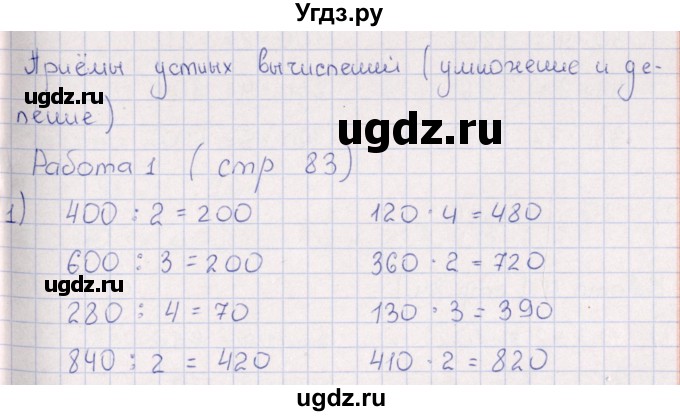 Угдз.ру
Приёмы устных вычислений (умножение и де-
ugdz.ru
ление)
ugdz.ru
Работа 1 (стр 83)
1) 400 : 2 = 200 120 · 4 = 480
600 : 3 = 200 360 · 2 = 720
ugdz.ru
280 : 4 = 70 130 · 3 = 390
840 : 2 = 420 410 · 2 = 820
ugdz.ru ugdz.ru